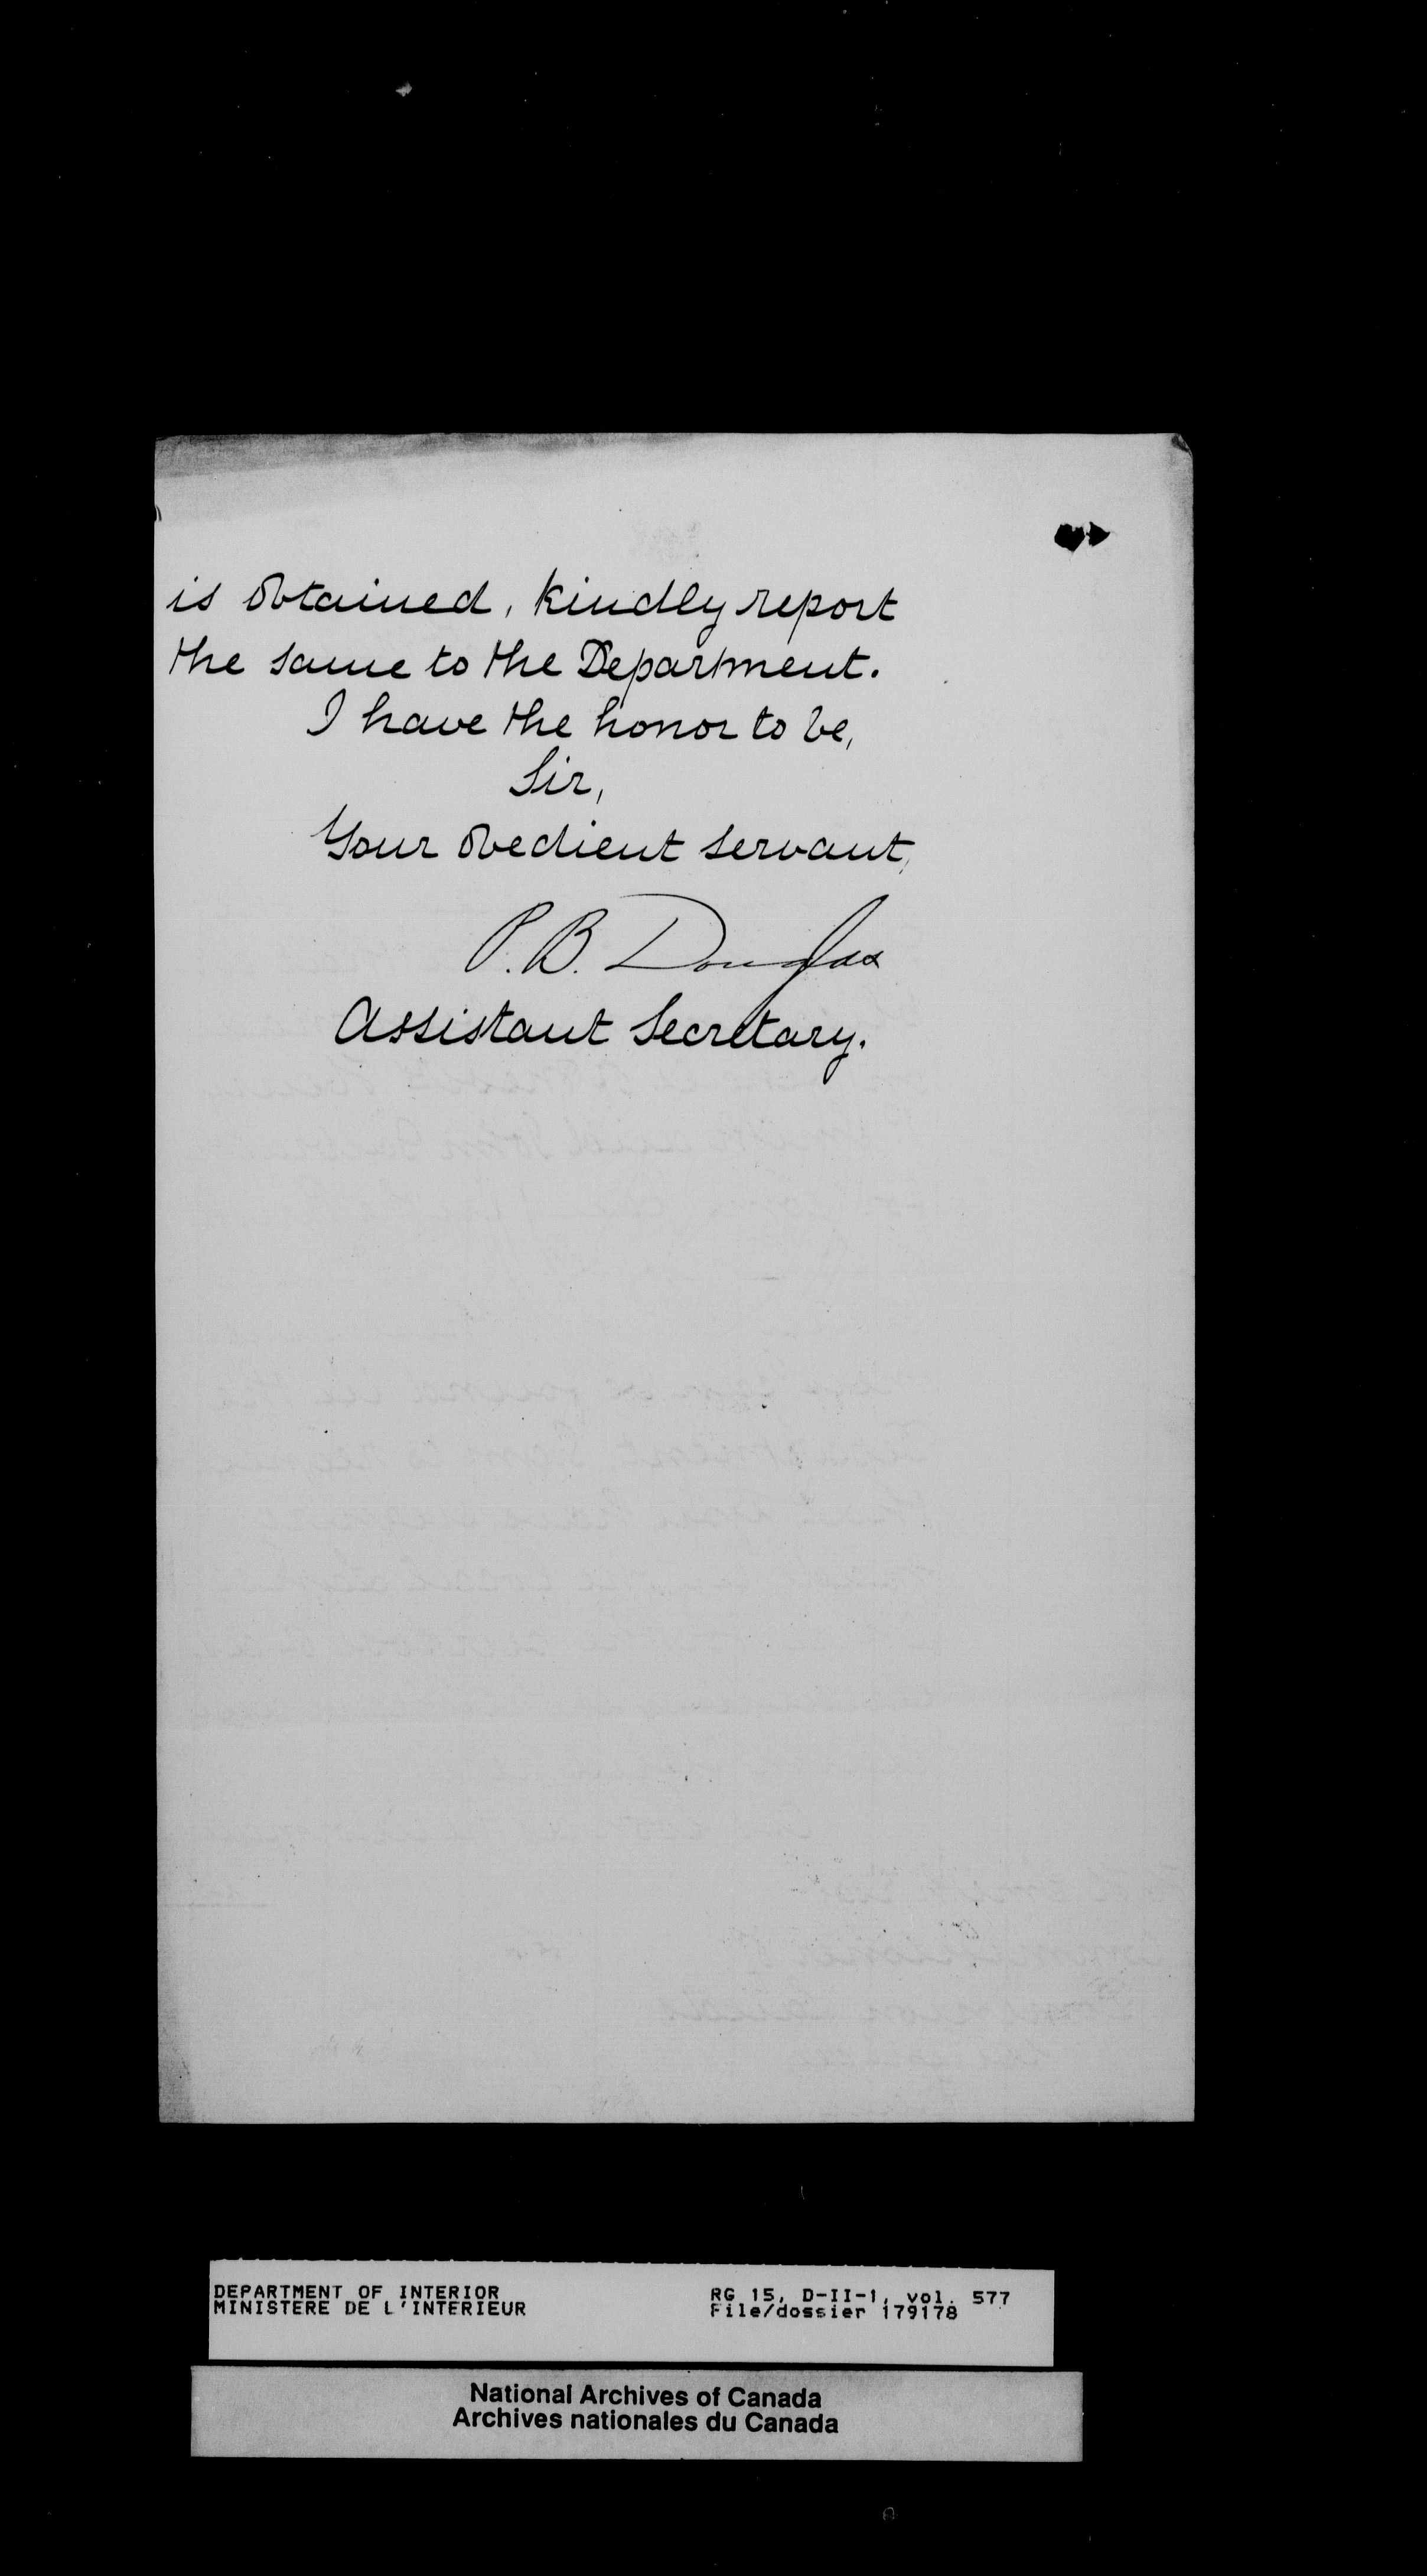 is obtained, kindly report
the same to the Department.
I have the honor to be,
Sir,
Your obedient servant,
P. B. Douglas
Assistant Secretary.
DEPARTMENT OF INTERIOR
MINISTERE DE L'INTERIEUR
RG 15, D-II-1, vol. 577
File/dossier 179178
National Archives of Canada
Archives nationales du Canada